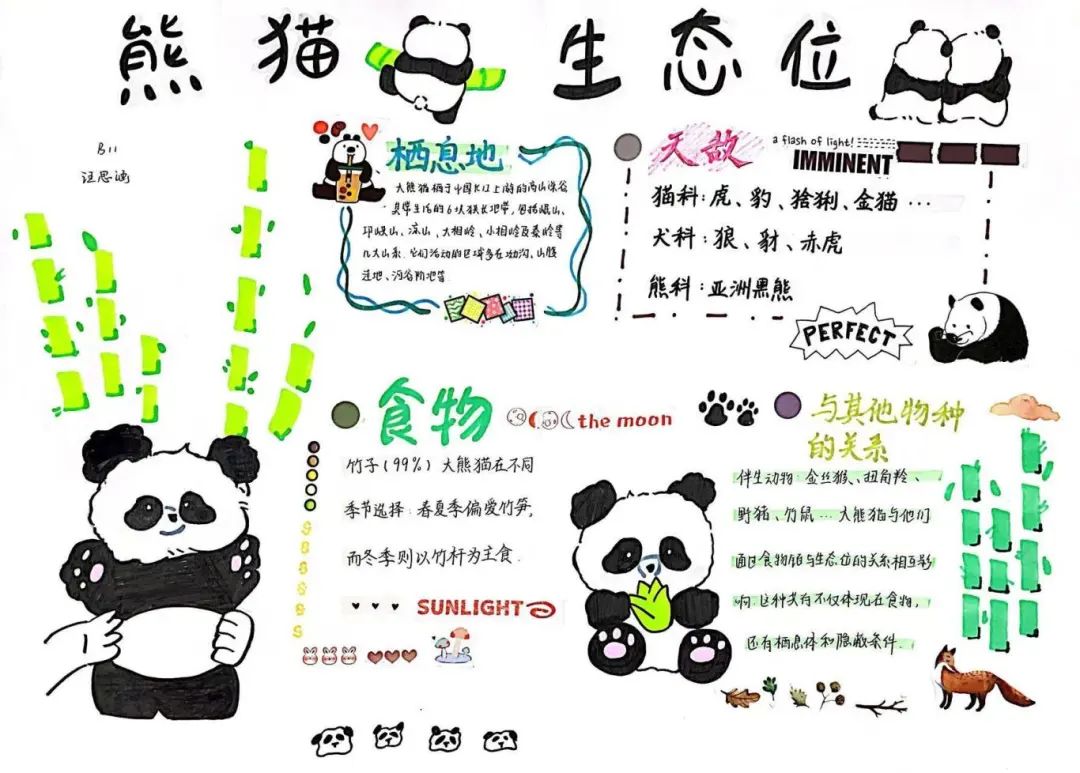 熊猫生态位
811
汪思涵
栖息地
大熊猫栖于中国长江上游的高山深谷
其常生活的6块狭长地带,包括岷山、
邛崃山、凉山、大相岭、小相岭及秦岭等
几大山系.它们活动的区域多在坳沟、山腹
洼地、河谷阶地等
天敌
a flash of light!
IMMINENT
猫科:虎、豹、猞猁、金猫…
犬科:狼、豺、赤虎
熊科:亚洲黑熊
PERFECT
食物
the moon
竹子(99%) 大熊猫在不同
季节选择:春夏季偏爱竹笋,
而冬季则以竹杆为主食.
SUNLIGHT
与其他物种
的关系
伴生动物:金丝猴、扭角羚、
野猪、竹鼠…大熊猫与他们
通过食物链与生态位的关系相互影
响.这种共存不仅体现在食物,
还有栖息体和隐蔽条件.